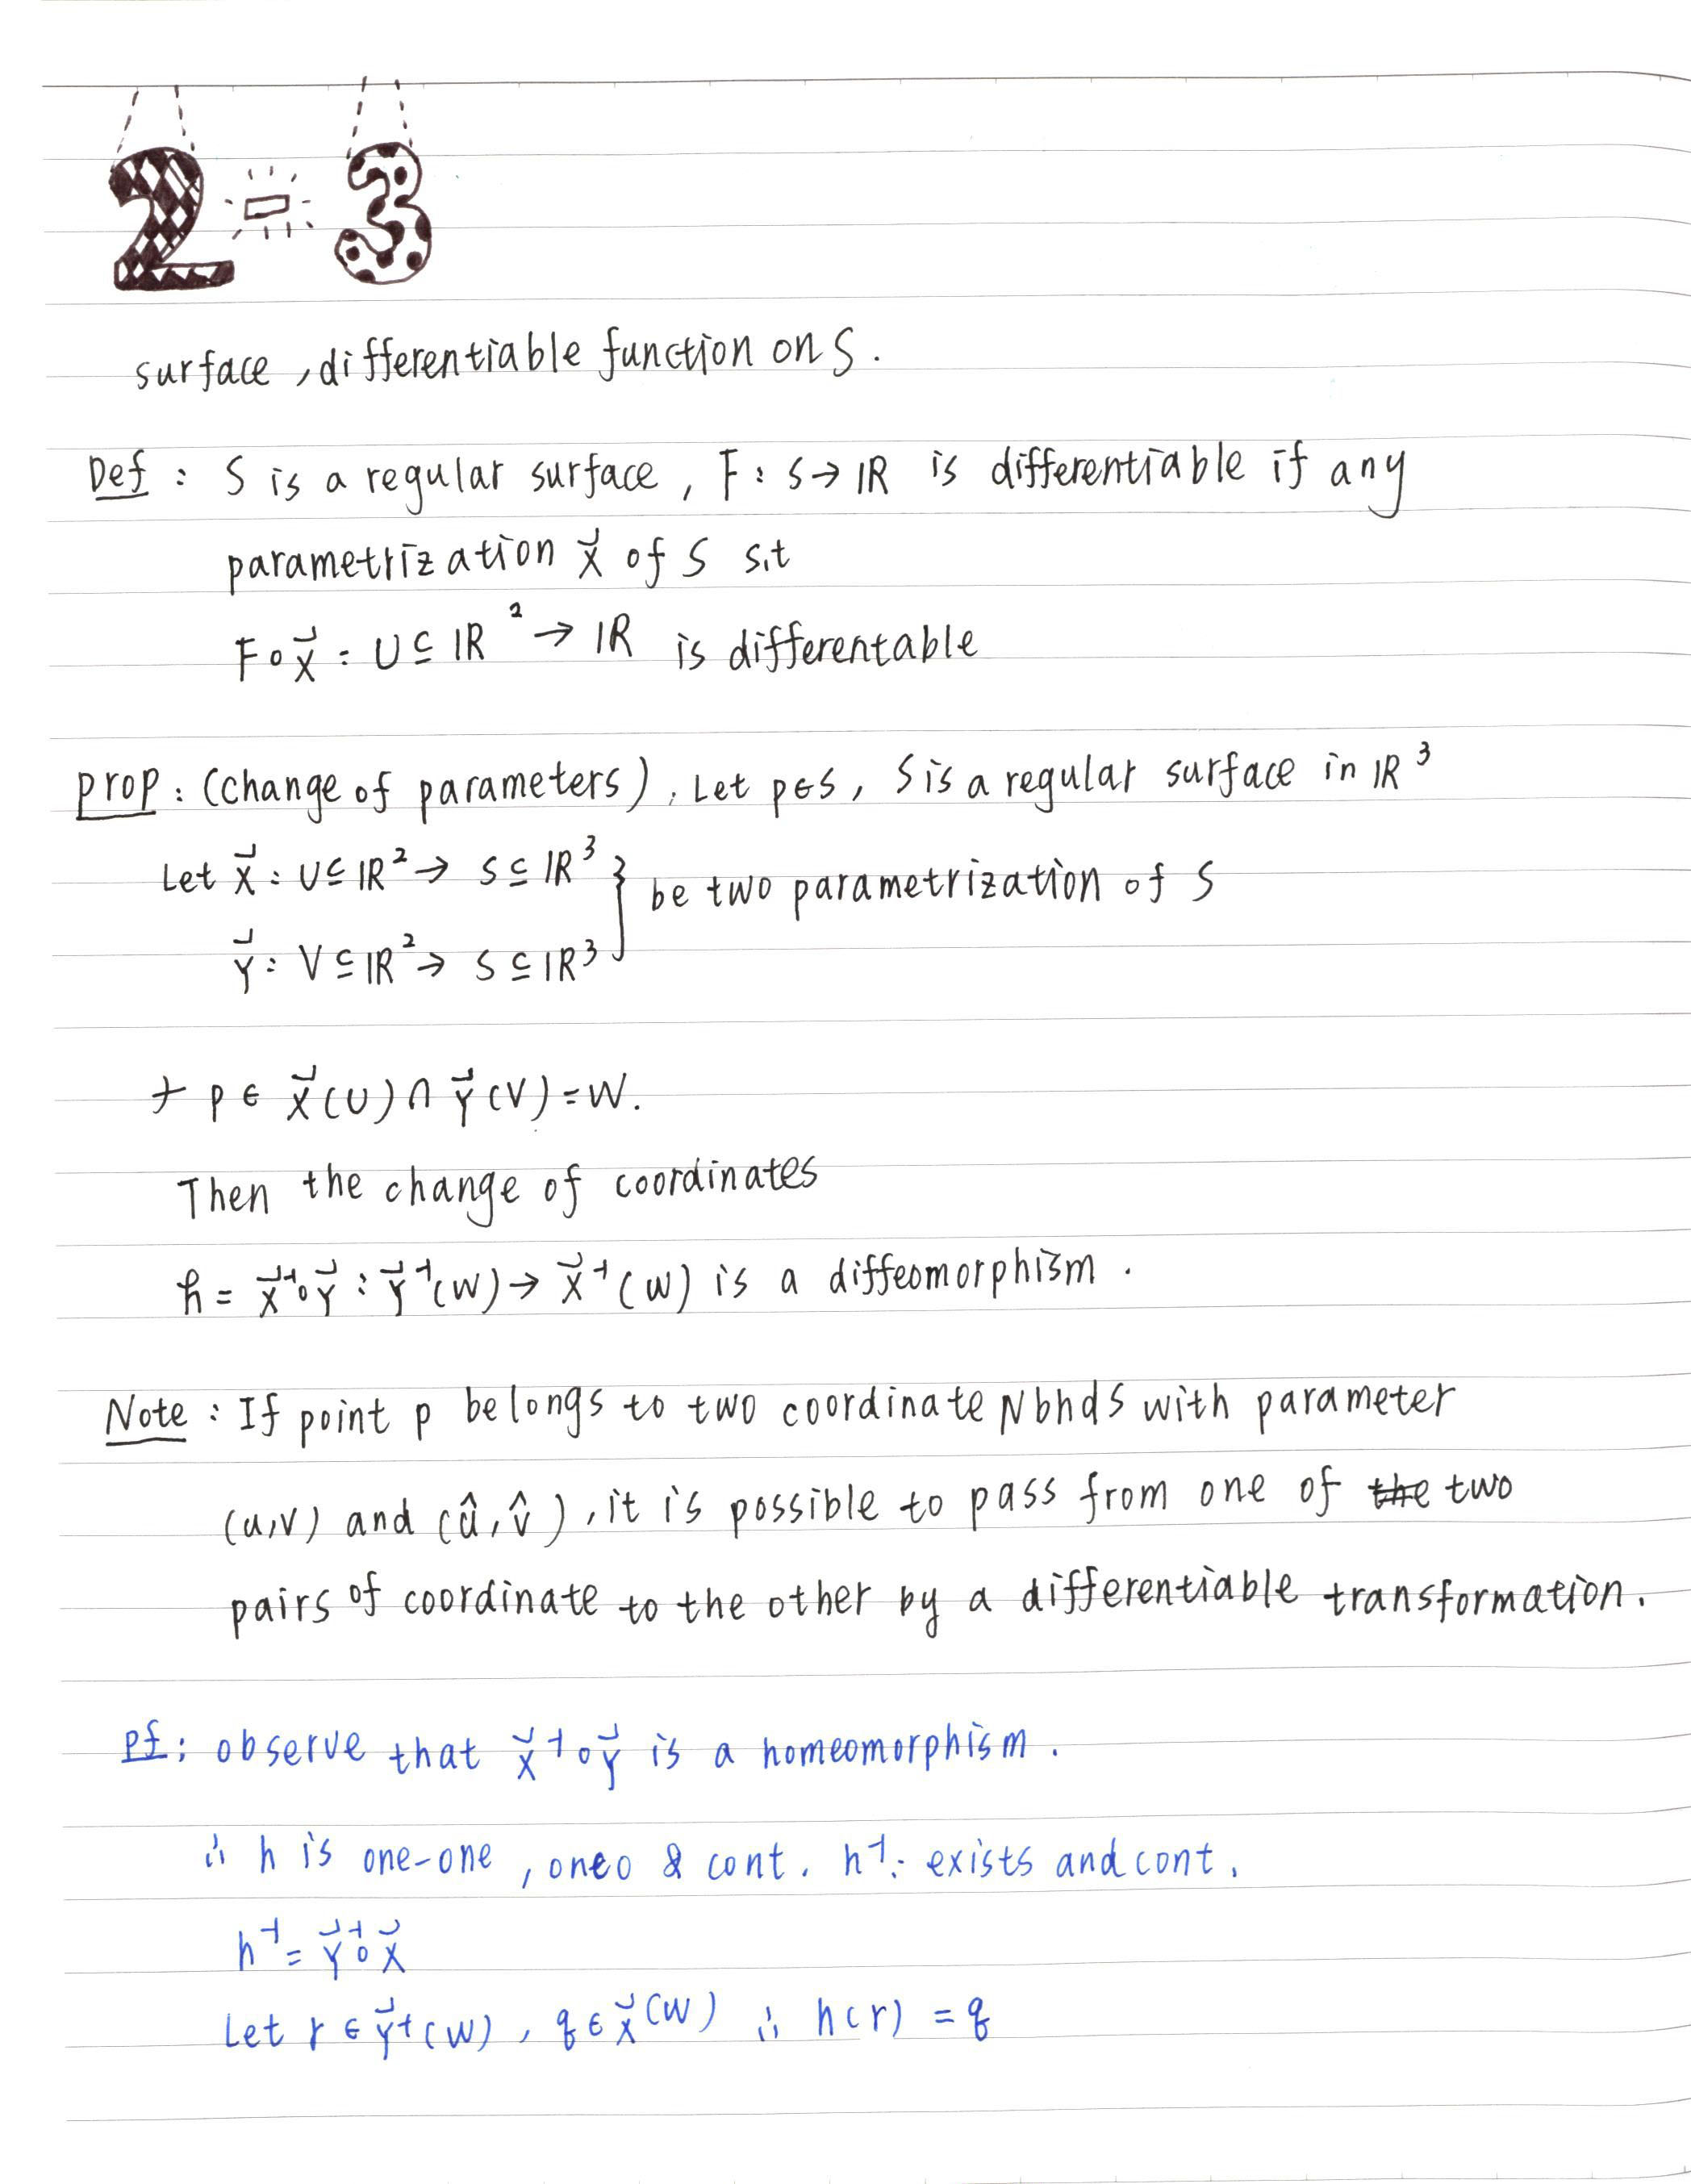 2-3
surface, differentiable function on S.
Def : S is a regular surface, F : S → ℝ is differentiable if any
parametrization X⃗ of S s.t
F∘X⃗ : U ⊆ ℝ² → ℝ is differentable
prop : (change of parameters). Let p∈S, S is a regular surface in ℝ³
Let X⃗ : U ⊆ ℝ² → S ⊆ ℝ³ } be two parametrization of S
Y⃗ : V ⊆ ℝ² → S ⊆ ℝ³
+ p ∈ X⃗(U) ∩ Y⃗(V) = W.
Then the change of coordinates
h = X⃗⁻¹∘Y⃗ : Y⃗⁻¹(W) → X⃗⁻¹(W) is a diffeomorphism.
Note : If point p belongs to two coordinate Nbhds with parameter
(u,v) and (û,v̂), it is possible to pass from one of the two
pairs of coordinate to the other by a differentiable transformation.
pf: observe that X⃗⁻¹∘Y⃗ is a homeomorphism.
∴ h is one-one, onto & cont. h⁻¹: exists and cont.
h⁻¹ = Y⃗⁻¹∘X⃗
Let r ∈ Y⃗⁻¹(W), q ∈ X⃗(W) ∴ h(r) = q